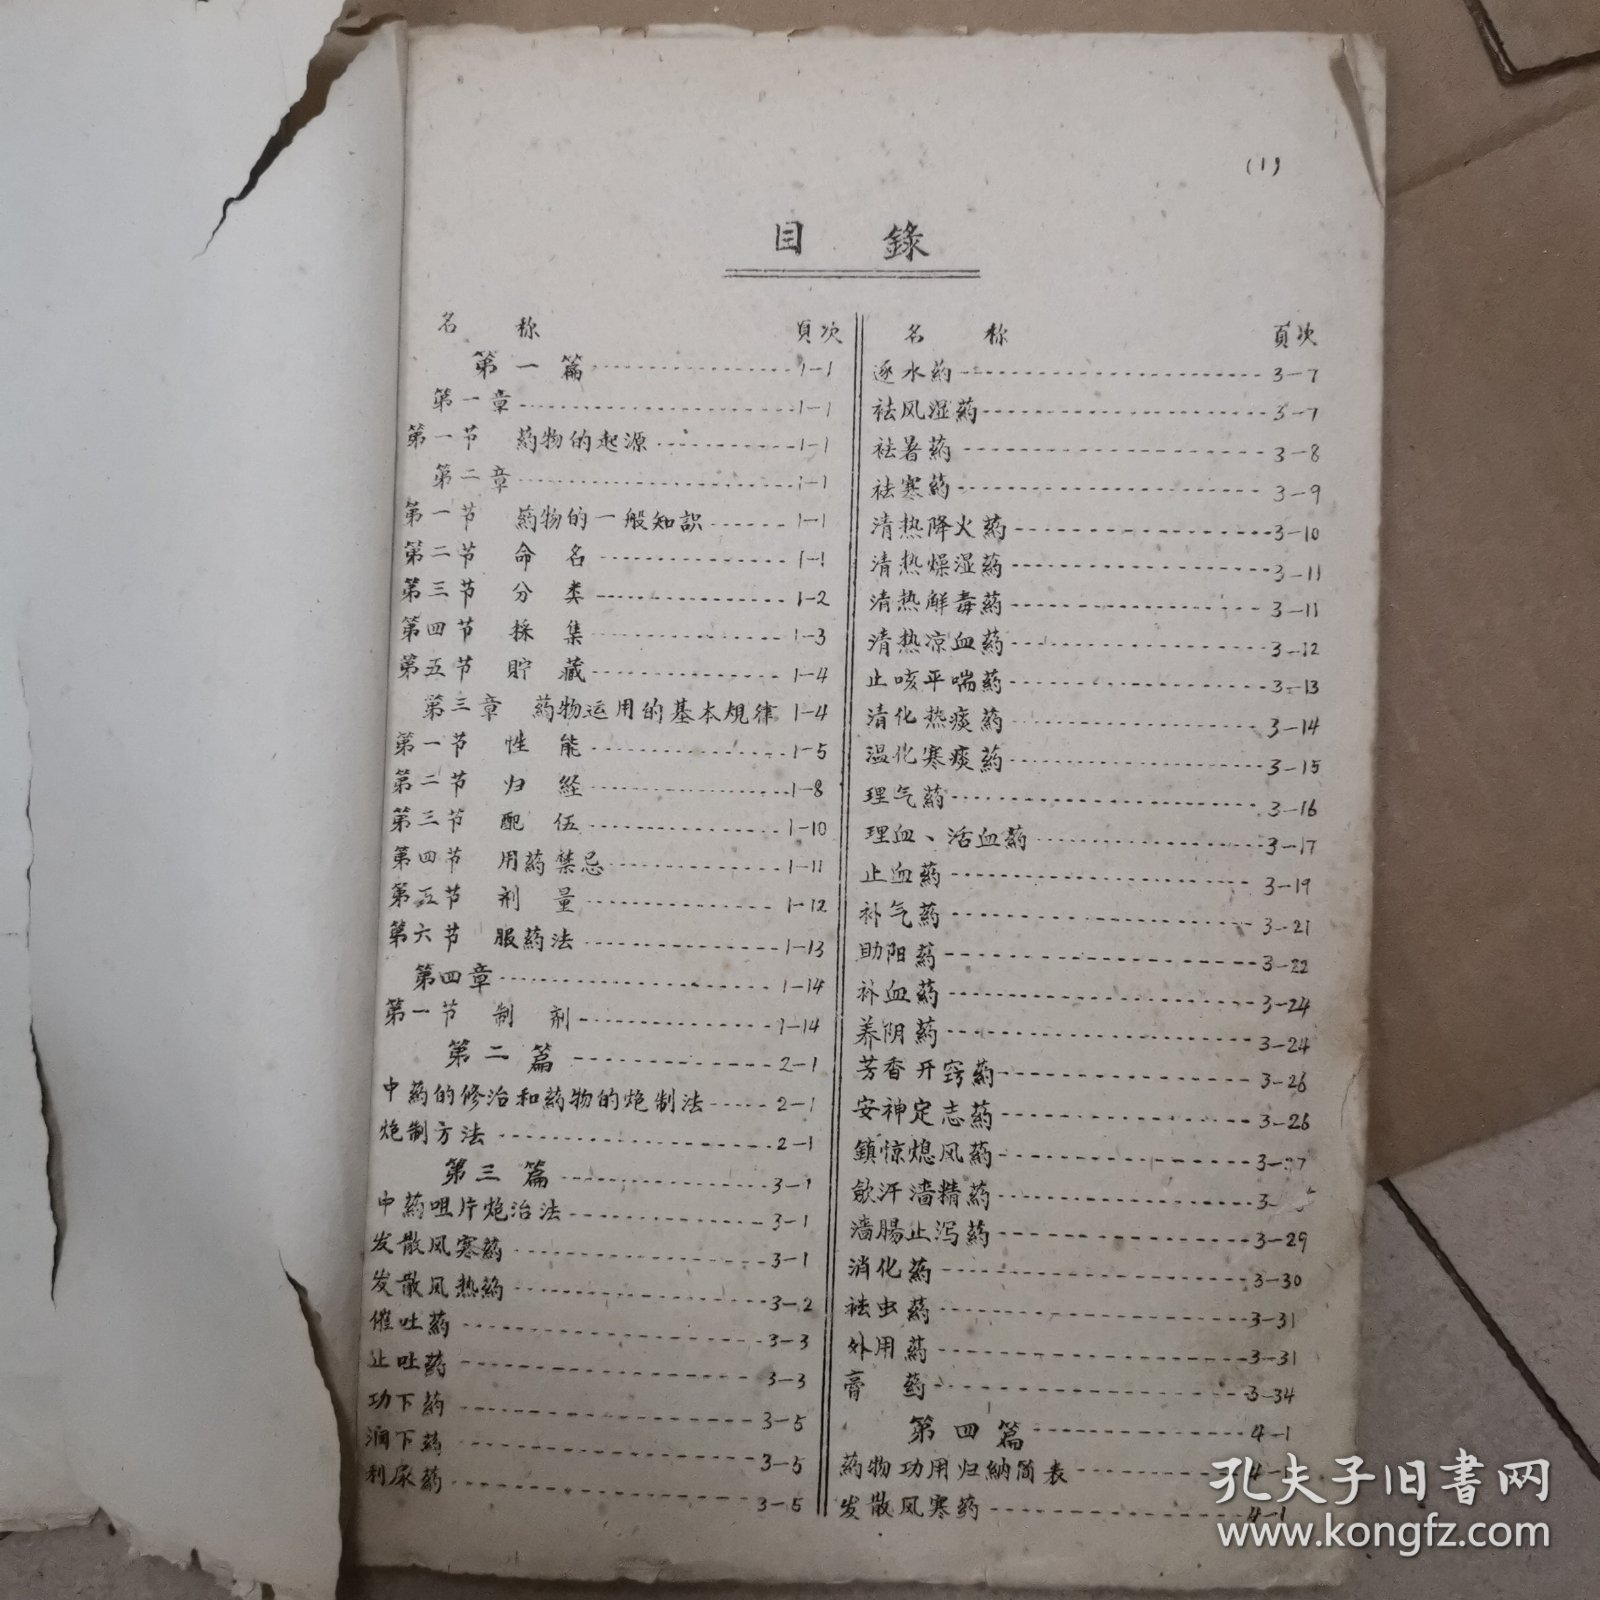 (1)
目 錄
名 称 頁次
第一篇 1-1
第一章 1-1
第一节 葯物的起源 1-1
第二章 1-1
第一节 葯物的一般知識 1-1
第二节 命名 1-1
第三节 分类 1-2
第四节 採集 1-3
第五节 貯藏 1-4
第三章 葯物运用的基本規律 1-4
第一节 性能 1-5
第二节 归経 1-8
第三节 配伍 1-10
第四节 用葯禁忌 1-11
第五节 剂量 1-12
第六节 服葯法 1-13
第四章 1-14
第一节 制剂 1-14
第二篇 2-1
中葯的修治和葯物的炮制法 2-1
炮制方法 2-1
第三篇 3-1
中葯咀片炮治法 3-1
发散风寒葯 3-1
发散风热葯 3-2
催吐葯 3-3
止吐葯 3-3
功下葯 3-5
润下葯 3-5
利尿葯 3-5
名 称 頁次
逐水葯 3-7
祛风湿葯 3-7
祛暑葯 3-8
祛寒葯 3-9
清热降火葯 3-10
清热燥湿葯 3-11
清热解毒葯 3-11
清热凉血葯 3-12
止咳平喘葯 3-13
清化热痰葯 3-14
温化寒痰葯 3-15
理气葯 3-16
理血、活血葯 3-17
止血葯 3-19
补气葯 3-21
助阳葯 3-22
补血葯 3-24
养阴葯 3-24
芳香开窍葯 3-26
安神定志葯 3-26
鎮惊熄风葯 3-27
歛汗濇精葯 3-
濇腸止泻葯 3-29
消化葯 3-30
祛虫葯 3-31
外用葯 3-31
膏葯 3-34
第四篇 4-1
葯物功用归納简表 4-
发散风寒葯 4-1
孔夫子旧書网
www.kongfz.com